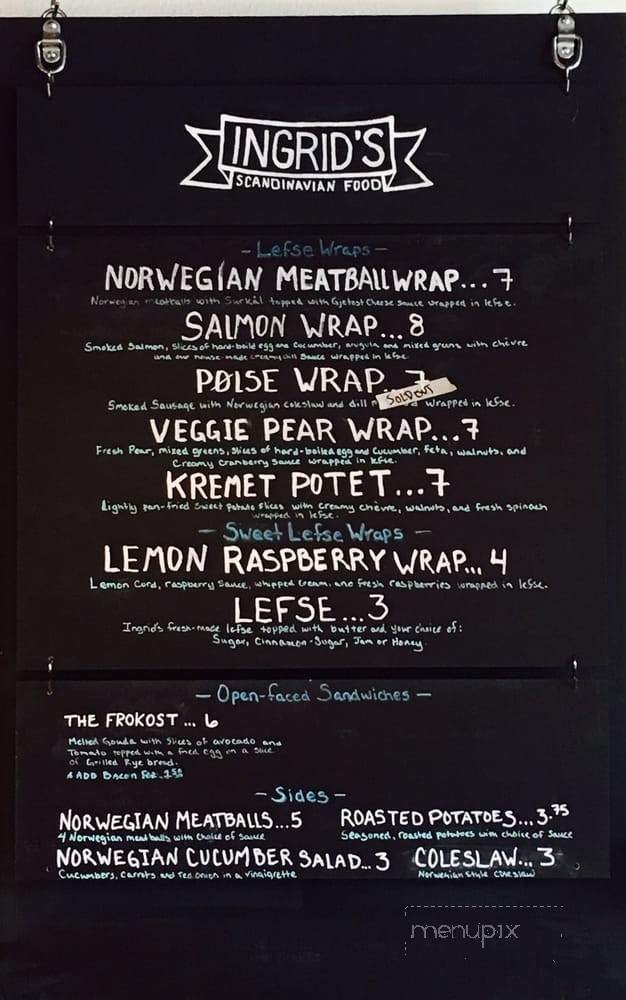 INGRID'S
SCANDINAVIAN FOOD
- Lefse Wraps -
NORWEGIAN MEATBALL WRAP... 7
Norwegian meatballs with Surkål topped with Gjetost Cheese sauce wrapped in lefse.
SALMON WRAP... 8
Smoked Salmon, slices of hard-boild egg and Cucumber, arugula and mixed greens with chèvre
and our house-made creamy dill Sauce wrapped in lefse.
PØLSE WRAP... 7
SOLD OUT
Smoked Sausage with Norwegian coleslaw and dill wrapped in lefse.
VEGGIE PEAR WRAP...7
Fresh Pear, mixed greens, slices of hard-boiled egg and Cucumber, feta, walnuts, and
Creamy cranberry sauce wrapped in lefse.
KREMET POTET...7
Lightly pan-fried Sweet Potato slices with creamy chèvre, walnuts, and fresh spinach
wrapped in lefse.
- Sweet Lefse Wraps -
LEMON RASPBERRY WRAP... 4
Lemon Curd, raspberry Sauce, whipped Cream, and fresh raspberries wrapped in lefse.
LEFSE...3
Ingrid's fresh-made lefse topped with butter and your choice of:
Sugar, Cinnamon-Sugar, Jam or Honey
- Open-faced Sandwiches -
THE FROKOST ... 6
Melted Gouda with Slices of avocado and
Tomato topped with a fried egg on a slice
of Grilled Rye bread.
ADD Bacon For
- Sides -
NORWEGIAN MEATBALLS...5
4 Norwegian meatballs with Choice of sauce
ROASTED POTATOES...3.75
Seasoned, roasted potatoes with choice of Sauce
NORWEGIAN CUCUMBER SALAD... 3
Cucumbers, Carrots and red onion in a vinaigrette
COLESLAW... 3
Norwegian Style Coleslaw
menupix